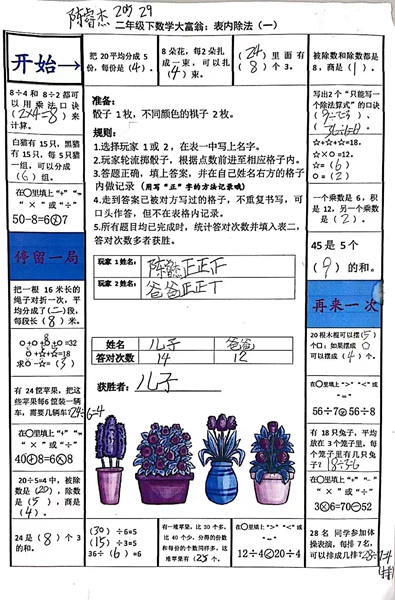 陈睿杰 205 29
二年级下数学大富翁：表内除法（一）
开始→
把 20 平均分成 5
份，每份是（4）。
8 朵花，每 2 朵扎
成一束，可以扎
（4）束。
（24）里面有
（8）个 3。
被除数和除数都是
8，商是（1）。
8÷4 和 8÷2 都可
以用乘法口诀
（2×4=8）来
计算。
白猫有 15 只，黑猫
有 15 只，每 5 只猫
一组，可以分成
（6）组。
在○里填上“+”“-”
“×”或“÷”
50-8=6×7
停留一局
把一根 16 米长的
绳子对折一次，平
均分成了（二）段，
每段长（8）米。
○+○+○=32
○+☆+☆=18
求○-☆=（3）
有 24 筐苹果，把这
些苹果每 6 筐装一辆
车，需要几辆车？24÷6=4
在○里填上“+”“-”
“×”或“÷”
40÷8=6
20÷5=4 中，被除
数是（20），除数
是（5），商是
（4）。
24 是（8）个 3
的和。
准备：
骰子 1 枚，不同颜色的棋子 2 枚。
规则：
1.选择玩家 1 或 2，在表一中写上名字。
2.玩家轮流掷骰子，根据点数前进至相应格子内。
3.答题正确，填上答案，并在自己姓名右方的格子
内做记录（用写“正”字的方法记录哦）
4.走到答案已被对方写过的格子，不重复书写，可
口头作答，但不在表格内记录。
5.所有题目均已完成时，统计答对次数并填入表二，
答对次数多者获胜。
玩家 1 姓名： 陈睿杰正正正
玩家 2 姓名： 爸爸正正丅
姓名 儿子 爸爸
答对次数 14 12
获胜者： 儿子
写出2个“只能写一
个除法算式”的口诀
☆+☆+☆=18，
☆×○=12。
☆=（6）
○=（2）
一个乘数是 6，积
是 12，另一个乘数
是（2）。
45 是 5 个
（9）的和。
再来一次
20 根木棍可以摆（5）
个口；如果摆成
可以摆成（4）个。
在○里填上“>”“<”或
“=”
56÷7 56÷8
有 18 只兔子，平均
放在 3 个笼子里，每
个笼子里有几只兔
子？18÷3=6
在○里填上“+”“-”
“×”或“÷”
3×6=70-52
28 名 同学参加体
操表演，每排 7 名，
可以排成几排？28÷7=4
（排）
（30）÷6=5
（15）÷3=5
36÷（6）=6
有一堆苹果，比 30 个多，
比 40 个少，分得的份数
和每份的个数同样多，这
堆苹果有（25）个。
在○里填上“>”“<”或
“=”
12÷4<20÷4